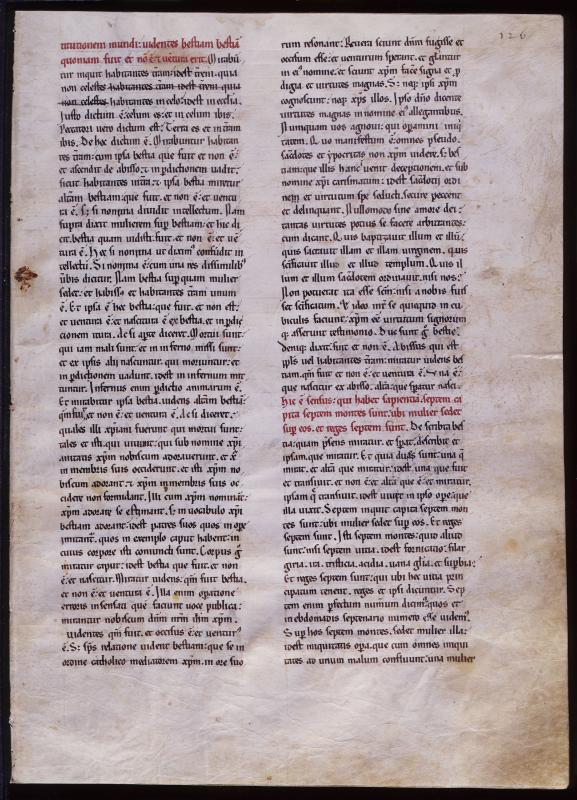 126
titutionem mundi: uidentes bestiam bestia
quoniam fuit et nō ē & uētura erit. Mirabū
tur inquit habitantes t̄ram: idest t̄rem. quia
non celestes habitantes t̄ram idest t̄rem quia
non celestes habitantes in celo: idest in ecclia.
Iusto dictum ē: celum es: et in celum ibis.
Peccatori uero dictum est: Terra es et in t̄ram
ibis. De hac dictum ē. Mirabuntur habitan
tes t̄ram: cum ipsa bestia que fuit et non ē:
et ascendit de abisso: et in p̄ditionem uadit:
sicut habitantes in t̄ra: & ipsa bestia miretur
aliam bestiam: que fuit. et non ē: et uentu
ra ē. S; si nomina diuidit intellectum. Nam
supra dixit mulierem sup bestiam: et hic di
cit. bestia quam uidisti fuit. et non ē: et uē
tura ē. Hec si nomina ut diximus confudit in
tellectū. Si nomina ē: cum una res dissimilib;
ubis dicitur. Nam bestia sup quam mulier
sedet: et habisso et habitantes t̄ram unum
ē. Et ipsa ē hec bestia: que fuit. et non est:
et uentura ē: et nascitura ē ex bestia. et in p̄di
cionem itura. ac si apte diceret. Mortui sunt:
qui iam mali sunt: et in inferno missi sunt:
et ex ipsis alii nascuntur. qui moriuntur: et
in p̄ditionem uadunt. idest in infernum mit
tuntur. Infernus enim p̄ditio animarum ē.
Et mirabitur ipsa bestia. uidens aliam bestiā:
qm̄ fuit. et non ē: et uentura ē. Ac si diceret.
quales illi xp̄iani fuerunt qui mortui sunt:
tales et isti. qui uiuunt: qui sub nomine xp̄i
anitatis xp̄m nobiscum adorauerunt. et x̄
in membris suis occiderunt. et isti xp̄m no
biscum adorant: & xp̄m in membris suis oc
cidere non formidant. Illi cum xp̄m nominant:
xp̄m adorare se estimant. S; in uocabulo xp̄i
bestiam adorant: idest patres suos quos in ope
imitant̄. quos in exemplo caput habent: in
cuius corpore isti coniuncti sunt. Corpus ḡ
miratur caput: idest bestia que fuit. et non
ē: et nascitur. Miratur uidens: qm̄ fuit bestia.
et non ē: et uentura ē. Illa enim opatione
erroris insensati que faciunt uoce publica:
mirantur nobiscum dnm n̄rm ihm xp̄m.
uidentes qm̄ fuit. et occisus ē: et uentur
ē. S; sp̄s relatione uident bestiam: que se in
ordine catholico mediatorem xp̄m. in ore suo
rum resonant: Reuera sciunt dnm fugisse et
occisum esse: et uenturum sperant. et gl̄antur
in ei nomine. et sciunt xp̄m face signa et p̄
digia et uirtutes magnas. S; neq; ipsi xp̄m
cognoscunt: neq; xp̄s illos. Ipso dn̄o dicente
uirtutes magnas in nomine ei allegantibus.
Nunquam uos agnoui: qui opamini iniq̄
tatem. Quo manifestum ē: omnes pseudo.
sacdotes et ypocritas non xp̄m uidere. s; bes
tiam: que illis hanc uenit deceptionem. et sub
nomine xp̄i carismatum: idest sacdotii ordi
nem et uirtutum spe seducti. secure peccent
et delinquant. Nullomodo sine amore dei:
tantas uirtutes potius se facere arbitrantes:
cum dicant. Quis baptizauit illum et illū:
quis sacrauit illam et illam uirginem. quis
scificauit illud et illud templum. Quis il
lum et illum sacdotem ordinauit. nisi nos:
Non poterat ita esse scm̄: nisi a nobis fuis
set scificatum. & ideo inter se quicquid in cu
biculis faciunt: xp̄m ee uirtutum signorum
q; asserunt testimonio. Due sunt ḡ bestie.
Deniq; dixit: fuit et non ē. Abissus qui est
ppls uel habitantes t̄ram: miratur uidens bes
tiam. qm̄ fuit et non ē: et uentura ē. Una ē:
que nascitur ex abisso. alia: que sperat nasci.
Hic ē sensus: qui habet sapientia. septem ca
pita septem montes sunt: ubi mulier sedet
sup eos. et reges septem sunt. De scribta bes
tia: quam p̄sens miratur. et sperat. describit et
ipsam. que miratur. Et quia duas sunt: una q̄
mirat. et alia que miratur: idest una que fuit
et transiuit. et non ē: et alia que ē: et miratur.
ipsam q̄ transiuit. idest uiuit in ipso ope: que
illa uixit. Septem inquit capita septem mon
tes sunt: ubi mulier sedet sup eos. Et reges
septem sunt. Isti septem montes: quid aliud
sunt: nisi septem uitia. idest fornicatio: filar
giria. ira. tristicia. acidia. uana glia. et supbia:
Et reges septem sunt: qui ubi hec uitia prin
cipatum tenent. reges et ipsi dicuntur. Sep
tem enim p̄fectum numum dicim: quos et
in ebdomadis septenario numero esse uidem.
Sup hos septem montes. sedet mulier illa:
idest iniquitatis opa. que cum omnes iniqui
tates ad unum malum confluunt: una mulier